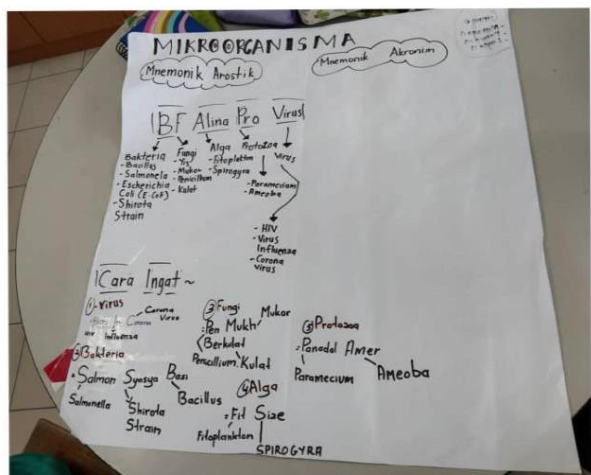 MIKROORGANISMA
Mnemonik Arostik
Mnemonik Akronim
BF Alina Pro Virus
Bakteria
- Bacillus
- Salmonela
- Escherichia
Coli (E-Coli)
- Shirota
Strain
Fungi
- Yis
- Mukor
- Penicillium
- Kulat
Alga
- Fitoplankton
- Spirogyra
Protozoa
- Paramecium
- Ameoba
Virus
- HIV
- Virus
Influenza
- Corona
virus
Cara Ingat ~
① Virus
In Corona
Corona
Virus
HIV
Influenza
② Bakteria
Salmon Syasya Basi
Salmonella
Shirota
Strain
Bacillus
③ Fungi
Pen Mukh
Mukor
Berkulat
Penicillium
Kulat
④ Alga
= Fit Size
Fitoplankton
SPIROGYRA
Protozoa
= Panadol Amer
Paramecium
Ameoba